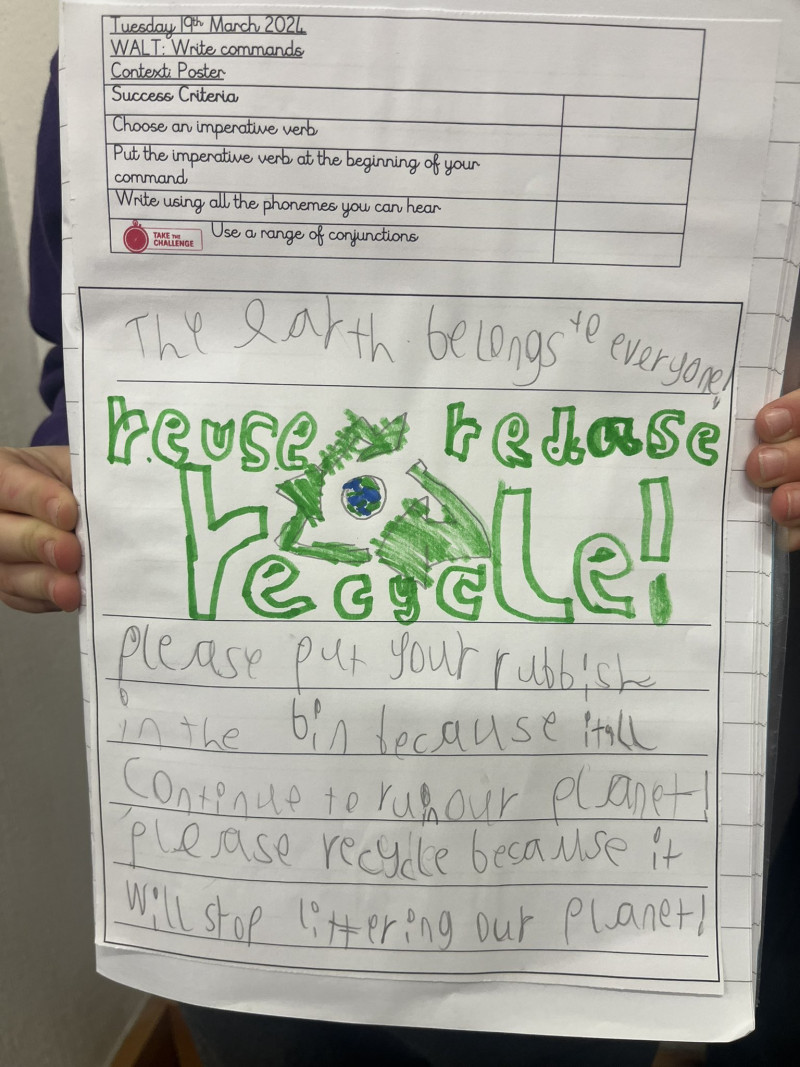 Tuesday 19th March 2024
WALT: Write commands
Context: Poster
Success Criteria
Choose an imperative verb
Put the imperative verb at the beginning of your
command
Write using all the phonemes you can hear
TAKE THE
CHALLENGE
Use a range of conjunctions
The earth belongs to everyone!
reuse reduase
recycle!
please put your rubbish
in the bin because itall
continue to ruin our planet!
please recycle because it
will stop littering our planet!